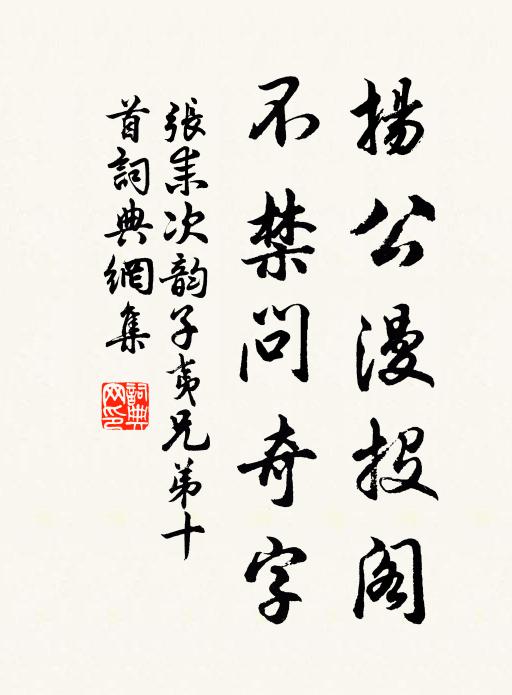 揚公漫投閣
不禁問奇字
張耒次韵子夷兄弟十
首詞典網集
詞典網印